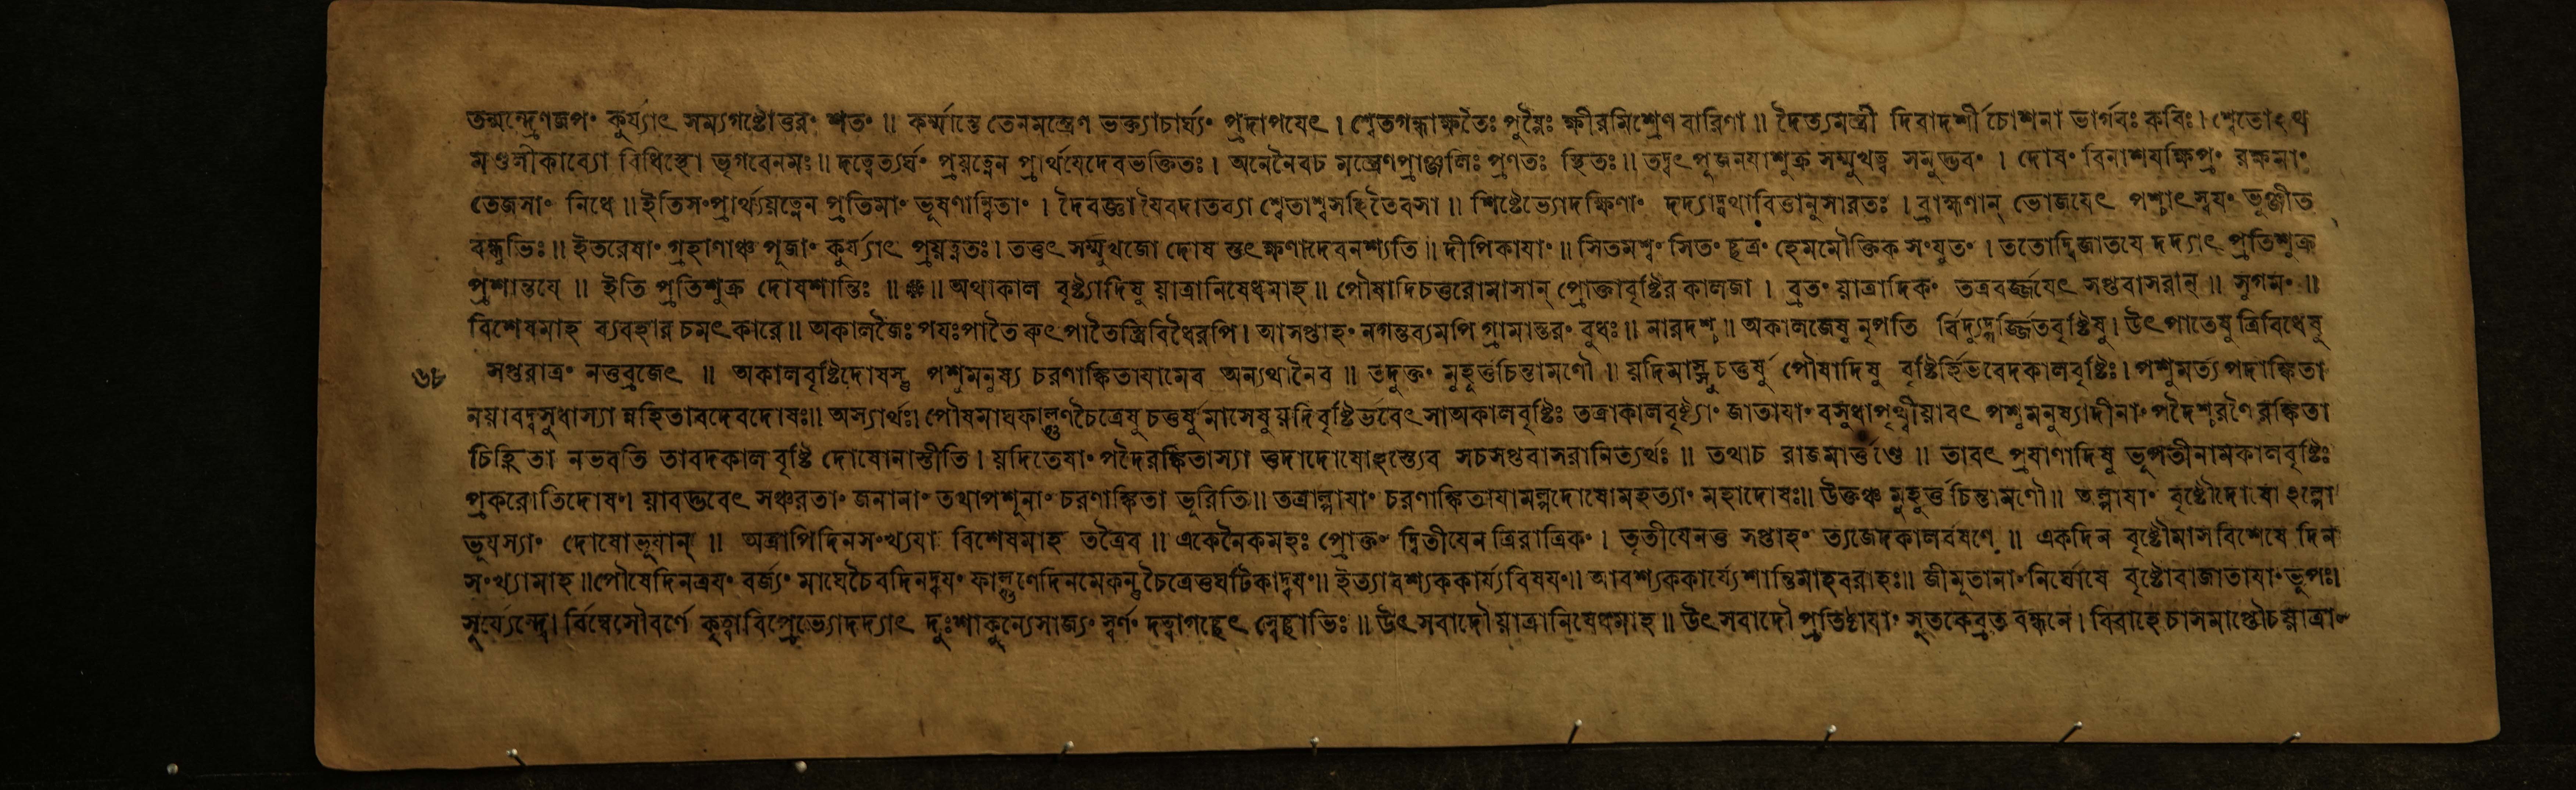 তন্মন্দ্রেণজপং কুর্য্যাৎ সম্যগষ্টোত্তরং শতং ॥ কর্ম্মান্তে তেনমন্ত্রেণ ভক্ত্যাচার্ঘ্যং প্রদাপযেৎ । শ্বেতগন্ধাক্ষতৈঃ পুষ্পৈঃ ক্ষীরমিশ্রেণ বারিণা ॥ দৈত্যমন্ত্রী দিবাদর্শী চোশনা ভার্গবঃ কবিঃ । শ্বেতোঽথ
মণ্ডলীকাব্যো বিধিস্থো ভৃগবেনমঃ ॥ দত্বেত্যর্ঘং প্রয়ত্নেন প্রার্থযেদেবভক্তিতঃ । অনেনৈবচ মন্ত্রেণপ্রাঞ্জলিঃ প্রণতঃ স্থিতঃ ॥ তদ্বৎ পূজনযাশুক্র সম্মুখত্ব সমুদ্ভবং । দোষং বিনাশযক্ষিপ্রং রক্ষমাং
তেজসাং নিধে ॥ ইতিসংপ্রার্থ্যয়ত্নেন প্রতিমাং ভূষণান্বিতাং । দৈবজ্ঞা যৈবদাতব্যা শ্বেতাশ্বসহিতৈবসা ॥ শিষ্টেভ্যোদক্ষিণাং দদ্যাদ্যথাবিত্তানুসারতঃ । ব্রাহ্মণান্ ভোজযেৎ পশ্চাৎস্বযং ভুঞ্জীত
বন্ধুভিঃ ॥ ইতরেষাং গ্রহাণাঞ্চ পূজাং কুর্য্যাৎ প্রয়ত্নতঃ । তত্তৎ সম্মুখজো দোষ স্তৎক্ষণাদেবনশ্যতি ॥ দীপিকাযাং ॥ সিতমশ্বং সিতং ছত্রং হেমমৌক্তিক সংযুতং । ততোদ্বিজাতযে দদ্যাৎ প্রতিশুক্র
প্রশান্তযে ॥ ইতি প্রতিশুক্র দোষশান্তিঃ ॥ ॥ অথাকাল বৃষ্ট্যাদিষু য়াত্রানিষেধমাহ ॥ পৌষাদিচতুরোমাসান্ প্রোক্তাবৃষ্টির কালজা । ব্রতং য়াত্রাদিকং তত্রবর্জ্জযেৎ সপ্তবাসরান্ ॥ সুগমং ॥
বিশেষমাহ ব্যবহার চমৎকারে ॥ অকালজৈঃ পযঃপাতৈ রুৎপাতৈস্ত্রিবিধৈরপি । আসপ্তাহং নগন্তব্যমপি গ্রামান্তরং বুধঃ ॥ নারদশ্চ ॥ অকালজেষু নৃপতি র্বিদ্যুদ্গর্জ্জিতবৃষ্টিষু । উৎপাতেষু ত্রিবিধেষু
৬৮ সপ্তরাত্রং নতুব্রজেৎ ॥ অকালবৃষ্টিদোষস্তু পশুমনুষ্য চরণাঙ্কিতাযামেব অন্যথানৈব ॥ তদুক্তং মুহূর্ত্তচিন্তামণৌ ॥ য়দিমাস্সুচতুর্ষু পৌষাদিষু বৃষ্টির্হিভবেদকালবৃষ্টিঃ । পশুমর্ত্য পদাঙ্কিতা
নয়াবদ্বসুধাস্যা ন্নহিতাবদেবদোষঃ ॥ অস্যার্থঃ । পৌষমাঘফাল্গুণচৈত্রেষু চতুর্ষুমাসেষু য়দিবৃষ্টির্ভবেৎ সাঅকালবৃষ্টিঃ তত্রাকালবৃষ্ট্যাং জাতাযাং বসুধাপৃথ্বীয়াবৎ পশুমনুষ্যাদীনাং পদৈশ্চরণৈ রঙ্কিতা
চিহ্নিতা নভবতি তাবদকাল বৃষ্টি দোষোনাস্তীতি । য়দিতেষাং পদৈরঙ্কিতাস্যা ত্তদাদোষোঽস্ত্যেব সচসপ্তবাসরানিত্যর্থঃ ॥ তথাচ রাজমার্ত্তণ্ডে ॥ তাবৎ প্রযাণাদিষু ভূপতীনামকালবৃষ্টিঃ
প্রকরোতিদোষং । য়াবদ্ভবেৎ সঞ্চরতাং জনানাং তথাপশূনাং চরণাঙ্কিতা ভূরিতি ॥ তত্রাল্পাযাং চরণাঙ্কিতাযামল্পদোষোমহত্যাং মহাদোষঃ ॥ উক্তঞ্চ মুহূর্ত্ত চিন্তামণৌ ॥ অল্পাযাং বৃষ্টৌদোষোঽল্পো
ভূযস্যাং দোষোভূযান্ ॥ অত্রাপিদিনসংখ্যযা বিশেষমাহ তত্রৈব ॥ একেনৈকমহঃ প্রোক্তং দ্বিতীযেন ত্রিরাত্রিকং । তৃতীযেনতু সপ্তাহং ত্যজেদকালবর্ষণে ॥ একদিন বৃষ্টৌমাসবিশেষে দিন
সংখ্যামাহ ॥ পৌষেদিনত্রযং বর্জ্যং মাঘেচৈবদিনদ্বযং ফাল্গুণেদিনমেকন্তু চৈত্রেতুঘটিকাদ্বযং ॥ ইত্যাবশ্যককার্য্যবিষযং ॥ আবশ্যককার্য্যেশান্তিমাহবরাহঃ ॥ জীমূতানাং নির্ঘোষে বৃষ্টৌবাজাতাযাং ভূপঃ ।
সূর্য্যেন্দ্বো র্বিম্বেসৌবর্ণে কৃত্বাবিপ্রেভ্যোদদ্যাৎ দুঃশাকুন্যেসাজ্যং স্বর্ণং দত্বাগচ্ছেৎ স্বেচ্ছাভিঃ ॥ উৎসবাদৌয়াত্রানিষেধমাহ ॥ উৎসবাদৌ প্রতিষ্ঠাযাং সূতকেব্রত বন্ধনে । বিবাহে চাসমাপ্তৌচয়াত্রাং